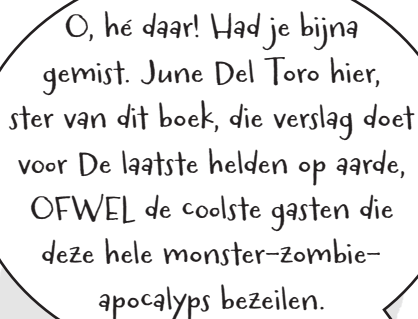 O, hé daar! Had je bijna
gemist. June Del Toro hier,
ster van dit boek, die verslag doet
voor De laatste helden op aarde,
OFWEL de coolste gasten die
deze hele monster-zombie-
apocalyps bezeilen.